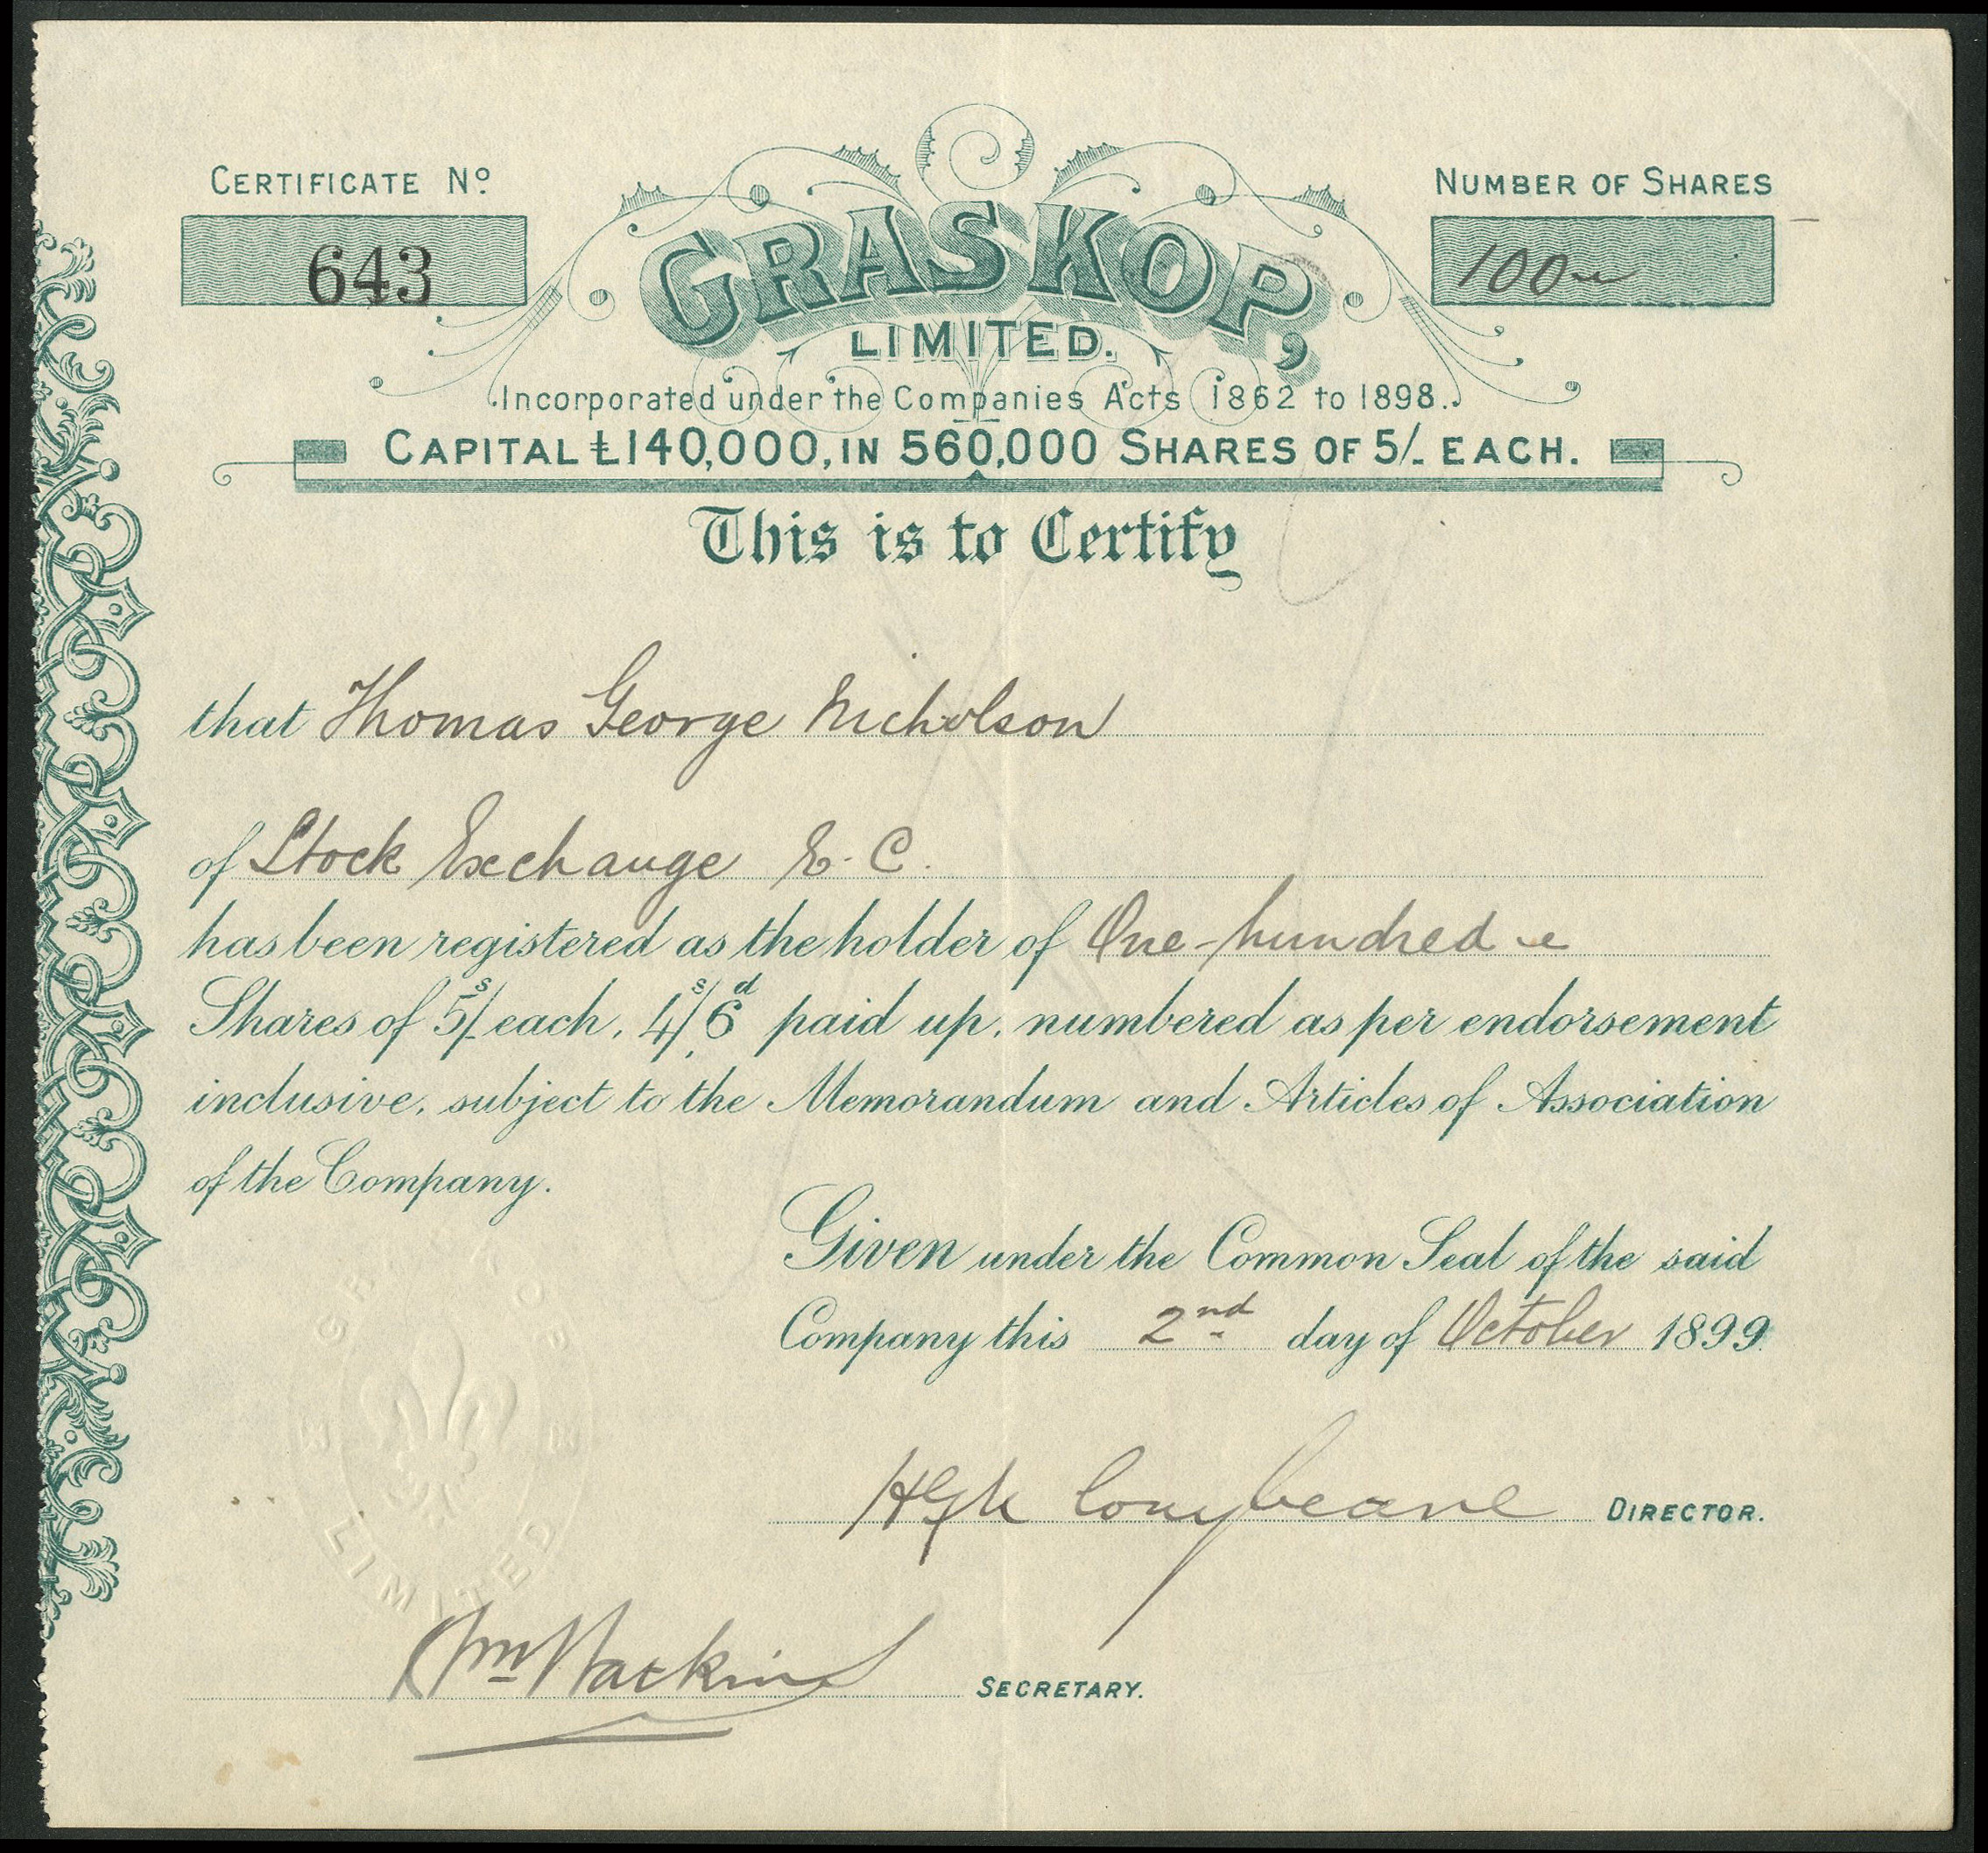 CERTIFICATE Nº
643
NUMBER OF SHARES
100
GRASKOP,
LIMITED.
Incorporated under the Companies Acts 1862 to 1898.
CAPITAL £140,000, IN 560,000 SHARES OF 5/- EACH.
This is to Certify
that Thomas George Nicholson
of Stock Exchange E.C.
has been registered as the holder of One-hundred
Shares of 5s/- each, 4s/6d paid up, numbered as per endorsement
inclusive, subject to the Memorandum and Articles of Association
of the Company.
Given under the Common Seal of the said
Company this 2nd day of October 1899.
Conybeare DIRECTOR.
LIMITED
Wm SECRETARY.